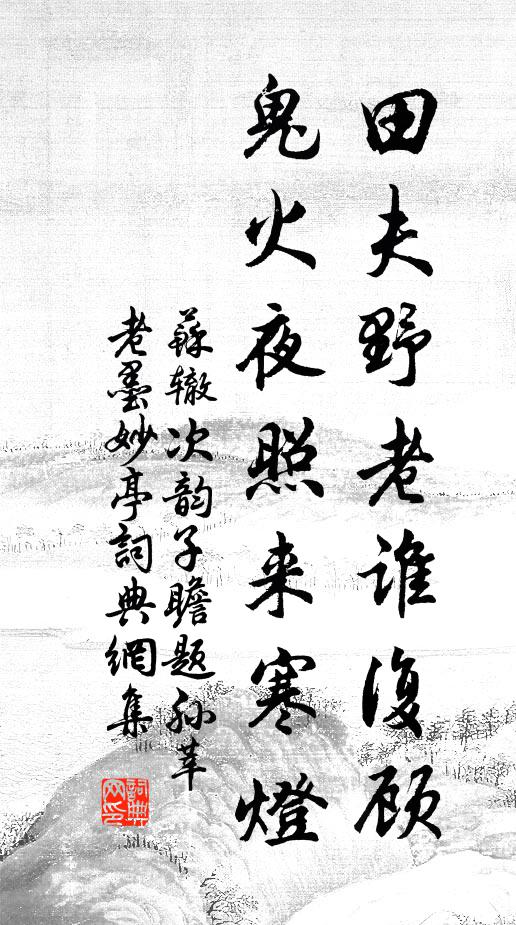 田夫野老谁復顾
鬼火夜照来寒燈
蘇辙次韵子瞻题孙莘
老墨妙亭詞典網集
詞典網印